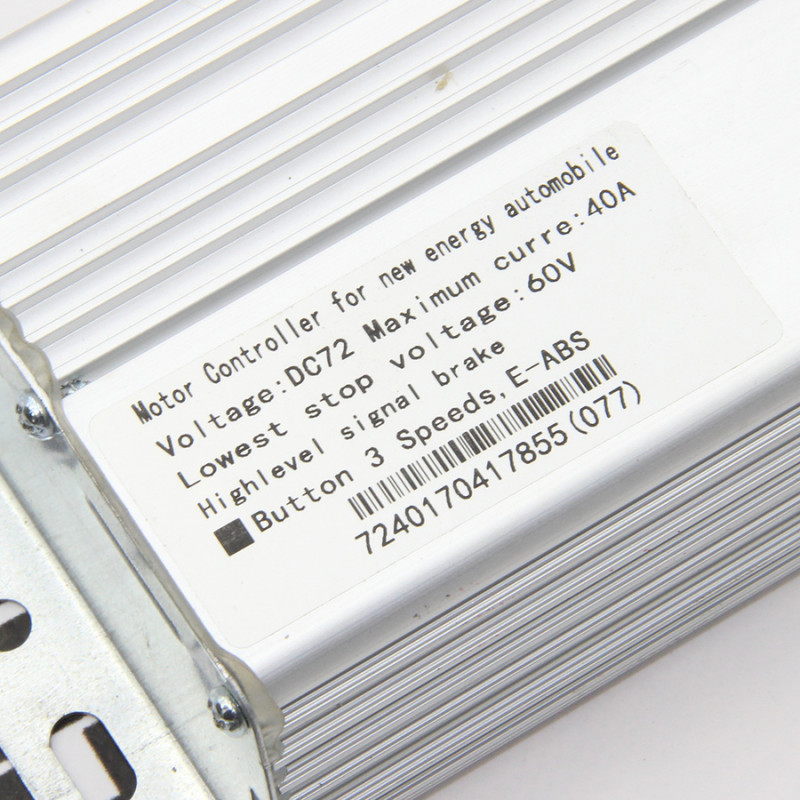 Motor Controller for new energy automobile
Voltage:DC72 Maximum curre:40A
Lowest stop voltage:60V
Highlevel signal brake
■Button 3 Speeds, E-ABS
7240170417855(077)